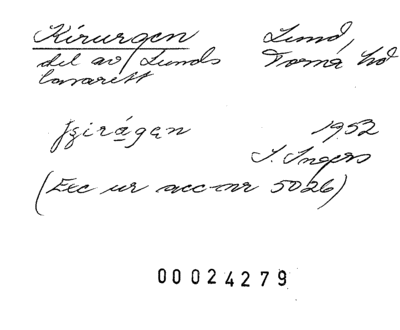 Kirurgen Lund,
del av Lunds Torna hd
lasarett
1952
I. Ingers
(Exc ur acc-nr 5026)
00024279